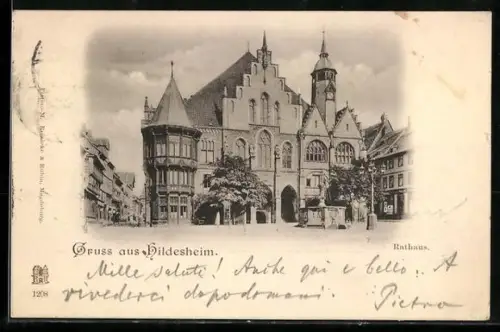 Gruss aus Hildesheim.
Rathaus.
1208
Mille saluti! Anche qui è bello. A
rivederci dopodomani.
Pietro